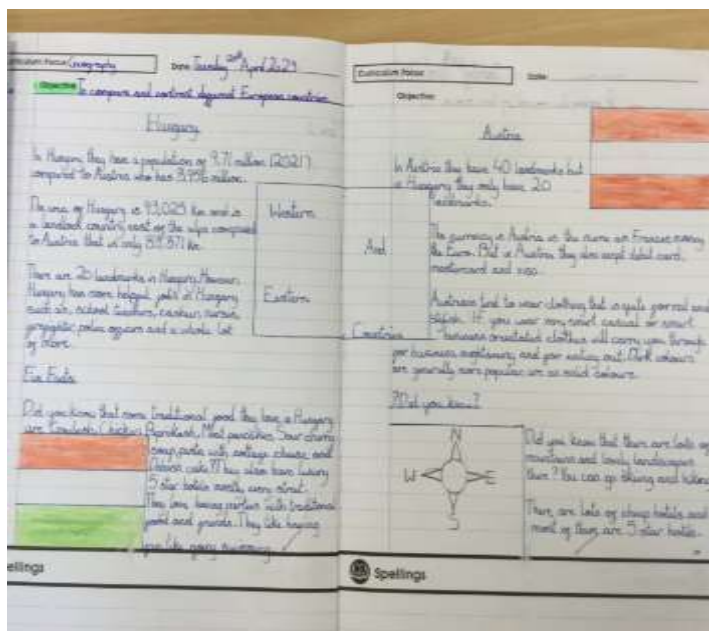 Curriculum Focus Geography
Date Tuesday April
Objective To compare and contrast different European countries
Hungary
In Hungary they have a population of 9.71 million (2021)
compared to Austria who has 8.956 million.
The area of Hungary is 93,025 Km and is
a landlock country east of the alps compared
to Austria that is only 83,871 Km
There are 20 landmarks in Hungary. However
Hungary has more helpful jobs in Hungary
such as, school teachers, cashier, nurses,
police officers and a whole lot
of more.
Fun Facts
Did you know that some traditional food they have in Hungary
are Goulash, Chicken Most Sour cherry
soup, pasta with cottage cheese, and
cake?! They also have luxury
5 star hotels every street.
They love having parties with traditional
food and friends. They like
like going swimming
Spellings
Western
Eastern
And
Countries
Curriculum Focus
Date
Objective
Austria
In Austria they have 40 landmarks but
in Hungary they only have 20
landmarks.
The currency in Austria is the same as France
the Euro. But in Austria they also accept debit card,
mastercard and visa.
Austrians tend to wear clothing that is quite formal and
stylish. If you wear smart casual or smart
business orientated clothes will carry you through
for business and for eating out. Dark colours
are generally more popular as solid colours.
?Did you know?
N
W E
S
Did you know that there are lots of
mountains and lovely landscapes
there? You can go skiing and hiking
There are lots of cheap hotels and
most of them are 5 star hotels.
Spellings